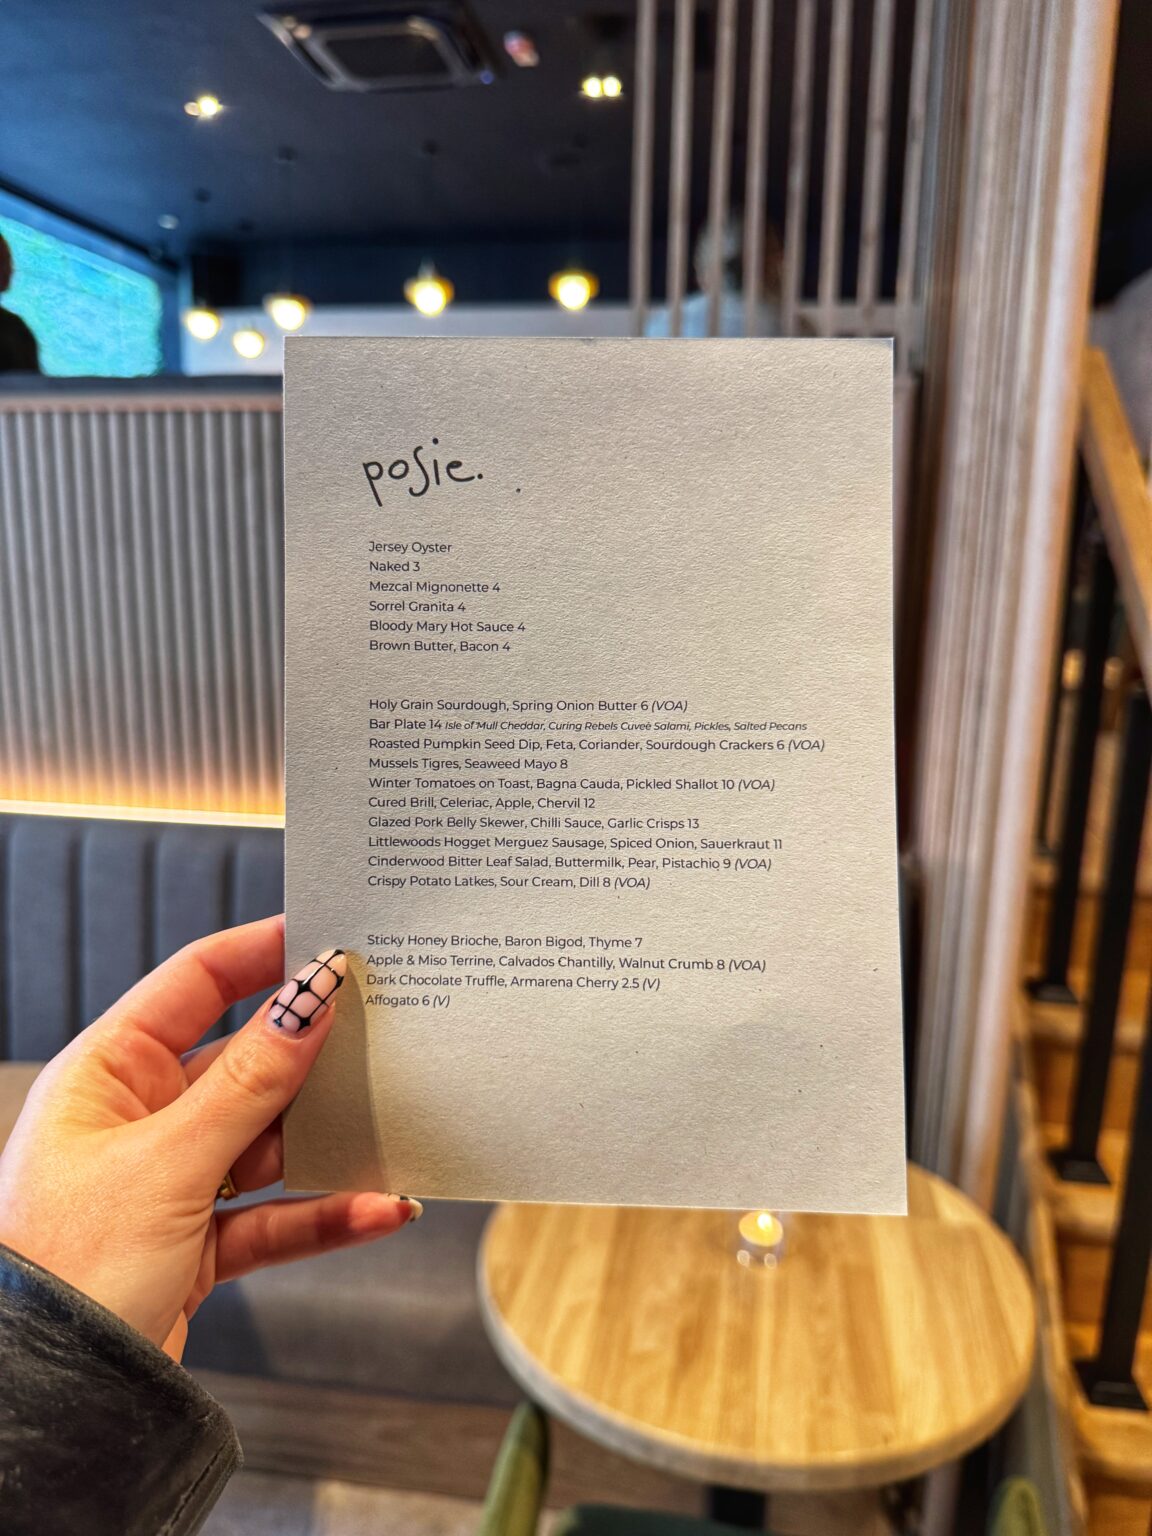 posie.
Jersey Oyster
Naked 3
Mezcal Mignonette 4
Sorrel Granita 4
Bloody Mary Hot Sauce 4
Brown Butter, Bacon 4
Holy Grain Sourdough, Spring Onion Butter 6 (VOA)
Bar Plate 14 Isle of Mull Cheddar, Curing Rebels Cuveè Salami, Pickles, Salted Pecans
Roasted Pumpkin Seed Dip, Feta, Coriander, Sourdough Crackers 6 (VOA)
Mussels Tigres, Seaweed Mayo 8
Winter Tomatoes on Toast, Bagna Cauda, Pickled Shallot 10 (VOA)
Cured Brill, Celeriac, Apple, Chervil 12
Glazed Pork Belly Skewer, Chilli Sauce, Garlic Crisps 13
Littlewoods Hogget Merguez Sausage, Spiced Onion, Sauerkraut 11
Cinderwood Bitter Leaf Salad, Buttermilk, Pear, Pistachio 9 (VOA)
Crispy Potato Latkes, Sour Cream, Dill 8 (VOA)
Sticky Honey Brioche, Baron Bigod, Thyme 7
Apple & Miso Terrine, Calvados Chantilly, Walnut Crumb 8 (VOA)
Dark Chocolate Truffle, Armarena Cherry 2.5 (V)
Affogato 6 (V)